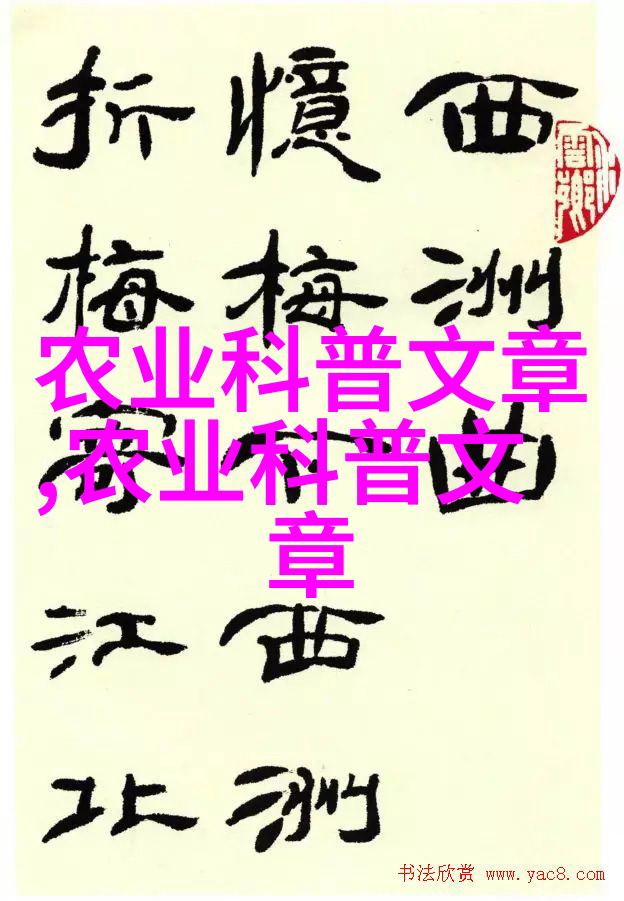 西洲曲
憶梅下西洲
折梅寄江北
农业科普文章
,农业科普文
章
书法欣赏 www.yac8.com